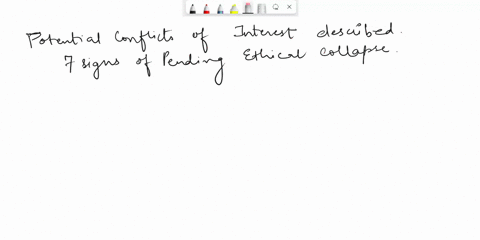 Potential Conflicts of Interest described.
7 signs of Pending Ethical collapse.